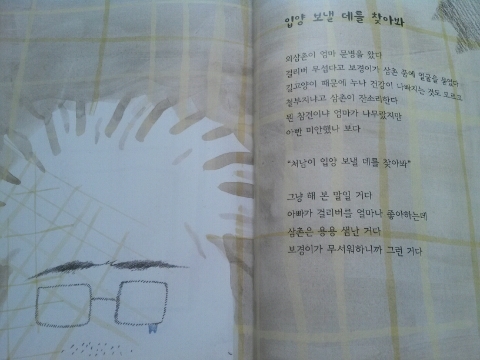 입양 보낼 데를 찾아봐
외삼촌이 엄마 문병을 왔다
걸리버 무섭다고 보경이가 삼촌 품에 얼굴을 묻었다
길고양이 때문에 누나 건강이 나빠지는 것도 모르고
철부지냐고 삼촌이 잔소리한다
뭔 참견이냐 엄마가 나무랐지만
아빤 미안했나 보다
"처남이 입양 보낼 데를 찾아봐"
그냥 해 본 말일 거다
아빠가 걸리버를 얼마나 좋아하는데
삼촌은 용용 샘난 거다
보경이가 무서워하니까 그런 거다